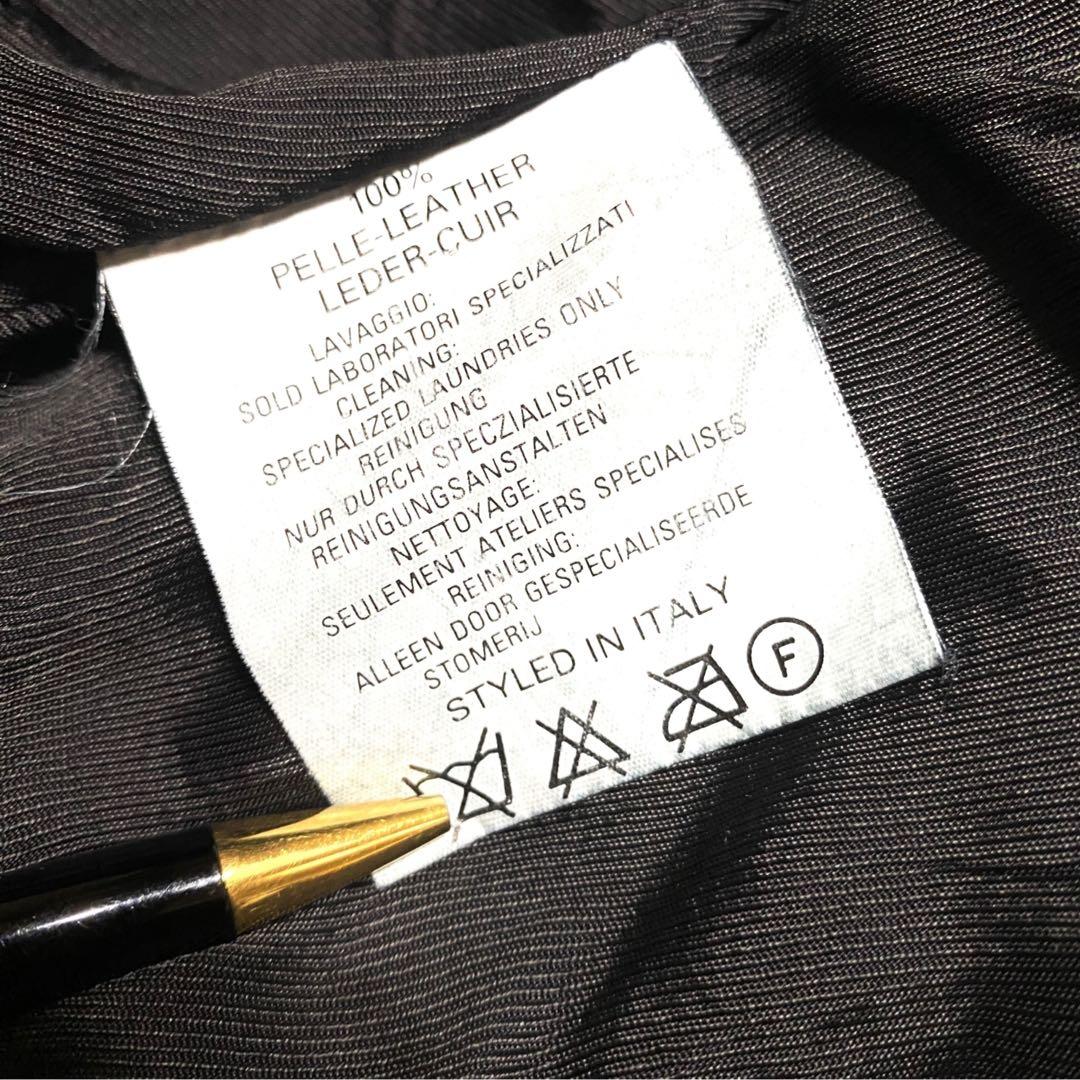 100%
PELLE-LEATHER
LEDER-CUIR
LAVAGGIO:
SOLD LABORATORI SPECIALIZZATI
CLEANING:
SPECIALIZED LAUNDRIES ONLY
REINIGUNG
NUR DURCH SPECZIALISIERTE
REINIGUNGSANSTALTEN
NETTOYAGE:
SEULEMENT ATELIERS SPECIALISES
REINIGING:
ALLEEN DOOR GESPECIALISEERDE
STOMERIJ
STYLED IN ITALY
F